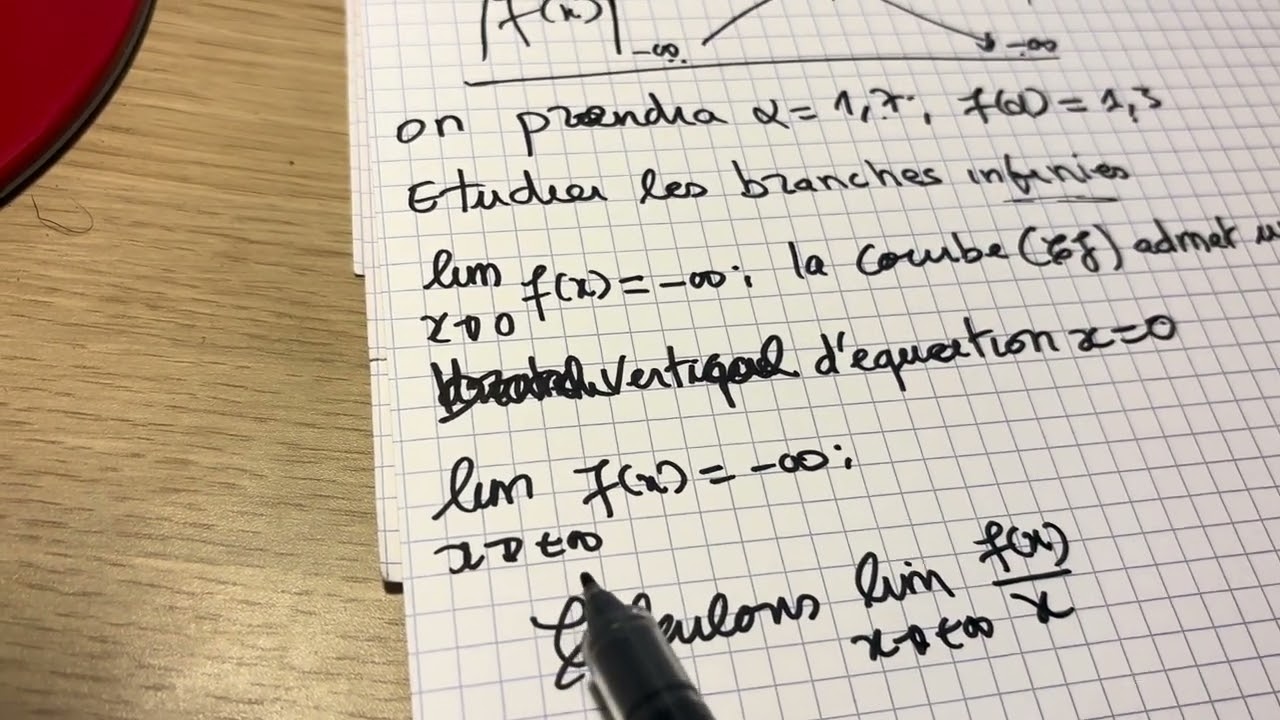 f(x) -∞ -∞
on prendra α = 1,7; f(α) = 1,3
Etudier les branches infinies
lim f(x) = -∞; la courbe (Cf) admet u
x→0
vertical d'equation x=0
lim f(x) = -∞;
x→+∞
lim f(x)/x
x→+∞